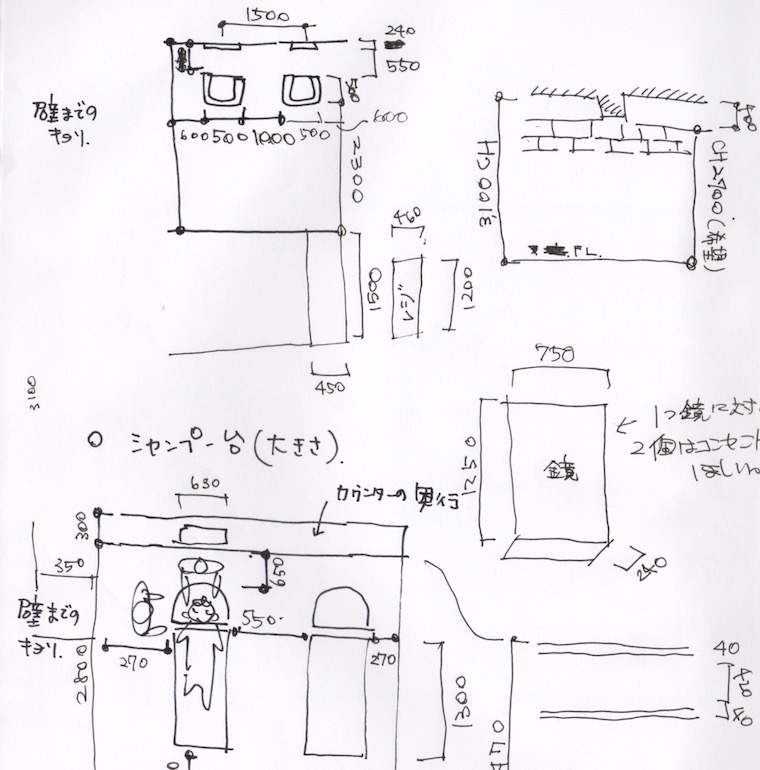 1500
240
550
壁までの
キョリ.
600 500 1000 500
600
2300
460
1500
レジ
1200
450
3100CH
CH2900(希望)
FL.
3100
シャンプー台(大きさ).
630
カウンターの奥行
300
350
650
壁までの
キョリ.
550
270
270
2800
1300
750
1250
鏡
240
1つ鏡に対
2個はコンセント
ほしい。
40